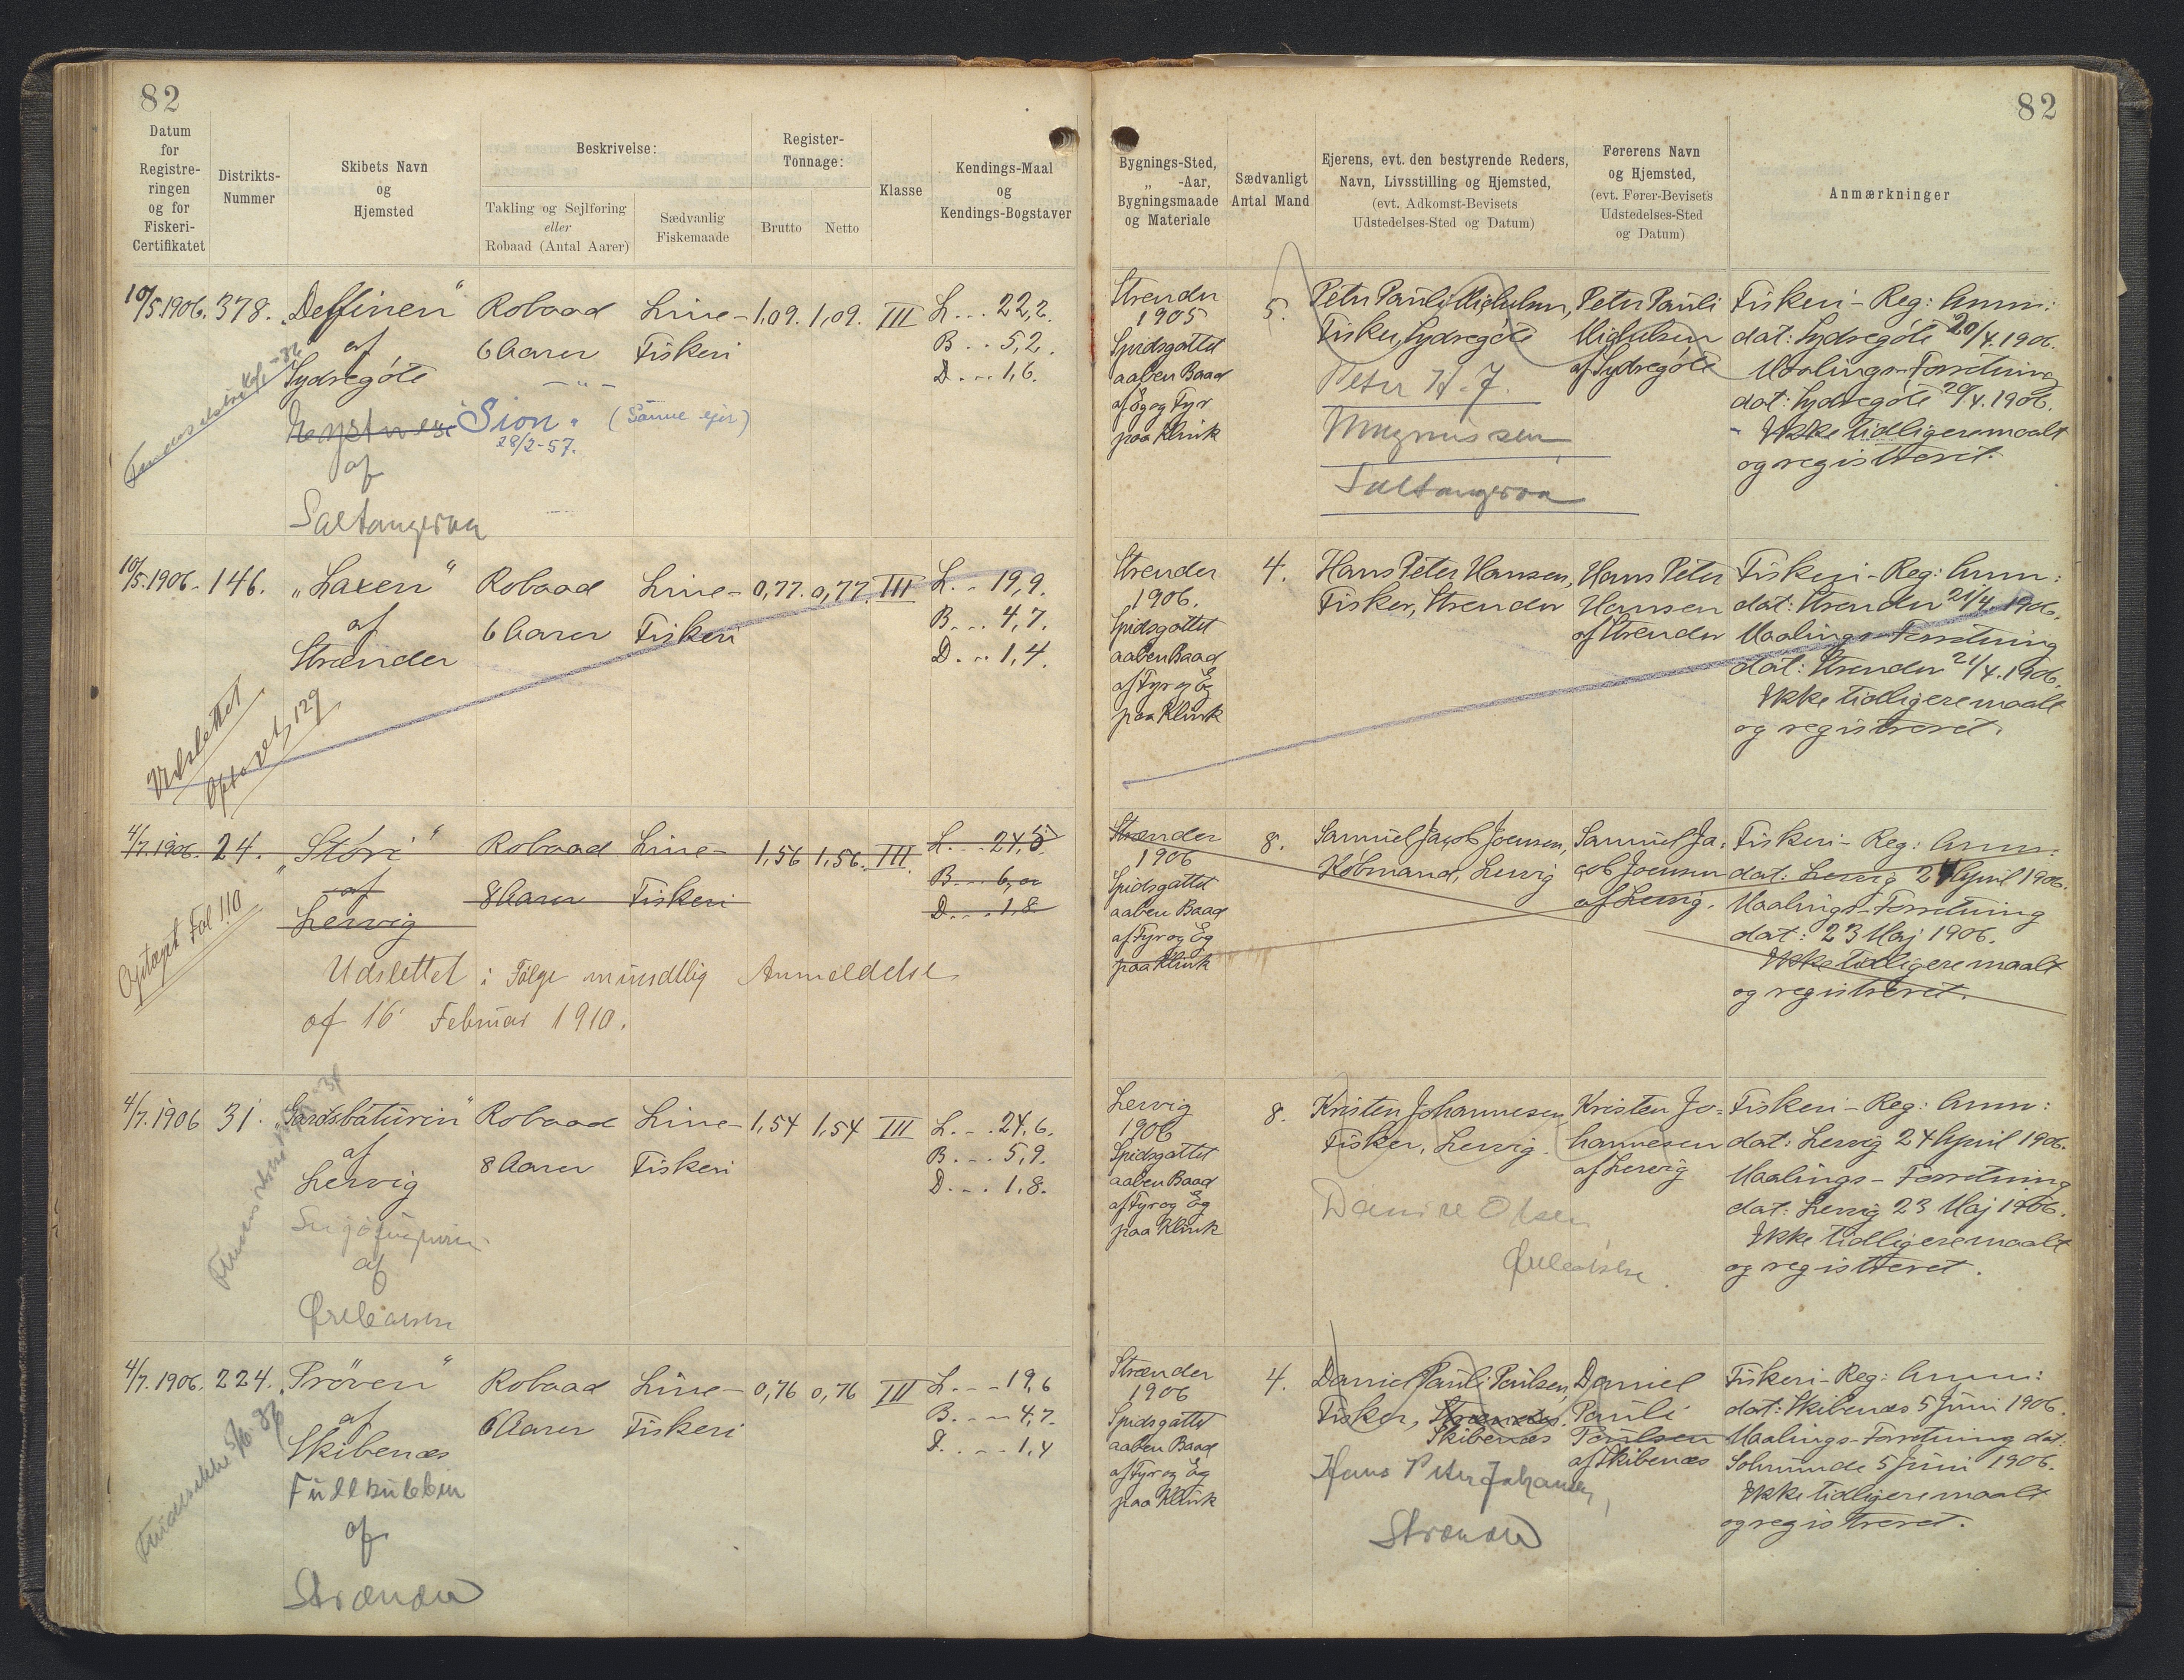 82
82
Datum
for
Registre-
ringen
og for
Fiskeri-
Certifikatet
Distrikts-
Nummer
Skibets Navn
og
Hjemsted
Beskrivelse:
Takling og Sejlføring
eller
Robaad (Antal Aarer)
Sædvanlig
Fiskemaade
Register-
Tonnage:
Brutto
Netto
Klasse
Kendings-Maal
og
Kendings-Bogstaver
Bygnings-Sted,
„ -Aar,
Bygningsmaade
og Materiale
Sædvanligt
Antal Mand
Ejerens, evt. den bestyrende Reders,
Navn, Livsstilling og Hjemsted,
(evt. Adkomst-Bevisets
Udstedelses-Sted og Datum)
Førerens Navn
og Hjemsted,
(evt. Fører-Bevisets
Udstedelses-Sted
og Datum)
Anmærkninger
10/5 1906.
378.
„Delfinen“
af
Sydregöte
Sion"
28/2-57.
(Samme ejer)
af
Saltangeraa
Robaad
6 Aarer
Line-
Fiskeri
1,09.
1,09.
III
L... 22,2.
B... 5,2.
D... 1,6.
Strender
1905
Spidsgattet
aaben Baad
af Eg og Fyr
paa Klink
5.
Peter Pauli Michelsen,
Fisker, Sydregöte
Peter H. J.
Magnussen
Saltangeraa
Peter Pauli
Michelsen
af Sydregöte
Fiskeri-Reg: Anm:
dat: Sydregöte 20/4. 1906.
Maalings-Forretning
dat: Sydregöte 20/4. 1906.
Ikke tidligere maalt
og registreret.
10/5. 1906.
146.
„Laxen“
af
Strænder
Udslettet
129
Robaad
6 Aarer
Line-
Fiskeri
0,77.
0,77.
III
L... 19,9.
B... 4,7.
D... 1,4.
Strender
1906.
Spidsgattet
aaben Baad
af Fyr og Eg
paa Klink
4.
Hans Peter Hansen,
Fisker, Strender
Hans Peter
Hansen
af Strender
Fiskeri-Reg: Anm:
dat: Strender 21/4 1906.
Maalings-Forretning
dat: Strender 21/4. 1906.
Ikke tidligere maalt
og registreret.
4/7. 1906.
24.
„Stóri“
af
Lervig
Optaget Fol 110
Robaad
8 Aarer
Line-
Fiskeri
1,56
1,56.
III.
L... 24,5
B... 6,0
D... 1,8.
Udslettet i Følge mundtlig Anmeldelse
af 16 Februar 1910.
Strænder
1906
Spidsgattet
aaben Baad
af Fyr og Eg
paa Klink
8.
Samuel Jacob Joensen,
Købmand, Lervig
Samuel Ja-
cob Joensen
af Lervig.
Fiskeri-Reg: Anm:
dat: Lervig 24 April 1906.
Maalings-Forretning
dat: 23 Maj 1906.
Ikke tidligere maalt
og registreret.
4/7. 1906
31.
„Gardsbáturin“
af
Lervig
af
Robaad
8 Aarer
Line-
Fiskeri
1,54
1,54
III
L... 24,6.
B... 5,9.
D... 1,8.
Lervig
1906
Spidsgattet
aaben Baad
af Fyr og Eg
paa Klink
8.
Kristen Johannesen,
Fisker, Lervig.
Olsen
Kristen Jo-
hannesen
af Lervig
Fiskeri-Reg: Anm:
dat: Lervig 24 April 1906.
Maalings-Forretning
dat: Lervig 23 Maj 1906.
Ikke tidligere maalt
og registreret.
4/7. 1906.
224.
„Pröven“
af
Skibenæs
af
Strænder
Robaad
6 Aarer
Line-
Fiskeri
0,76
0,76
III
L... 19,6
B... 4,7.
D... 1,4
Strænder
1906
Spidsgattet
aaben Baad
af Fyr og Eg
paa Klink
4.
Daniel Pauli Poulsen,
Fisker, Strænder.
Skibenæs
Hans Peter Johansen,
Strænder
Daniel
Pauli
Poulsen
af Skibenæs
Fiskeri-Reg: Anm:
dat: Skibenæs 5 Juni 1906.
Maalings-Forretning dat:
Solmunde 5 Juni 1906.
Ikke tidligere maalt
og registreret.